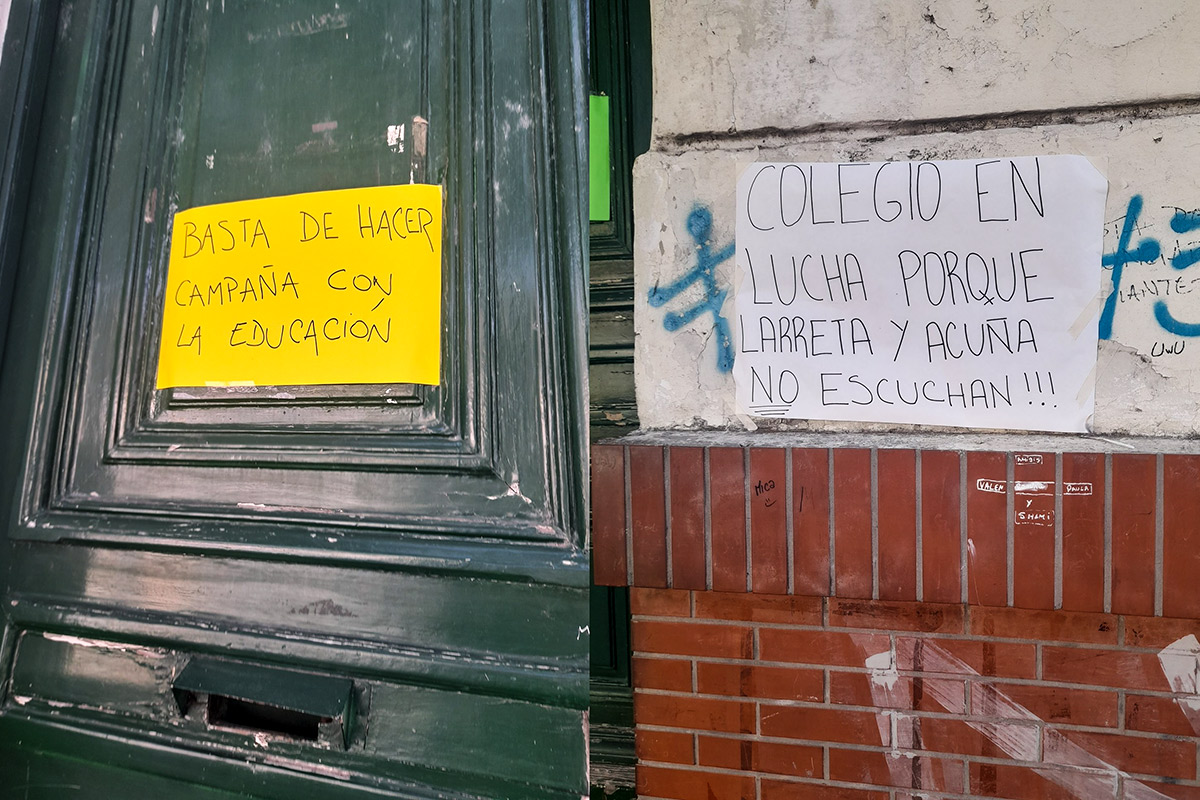 BASTA DE HACER
CAMPAÑA CON
LA EDUCACIÓN
COLEGIO EN
LUCHA PORQUE
LARRETA Y ACUÑA
NO ESCUCHAN!!!
UWU
Mica
VALEN
PAULA
Y
SHAMI